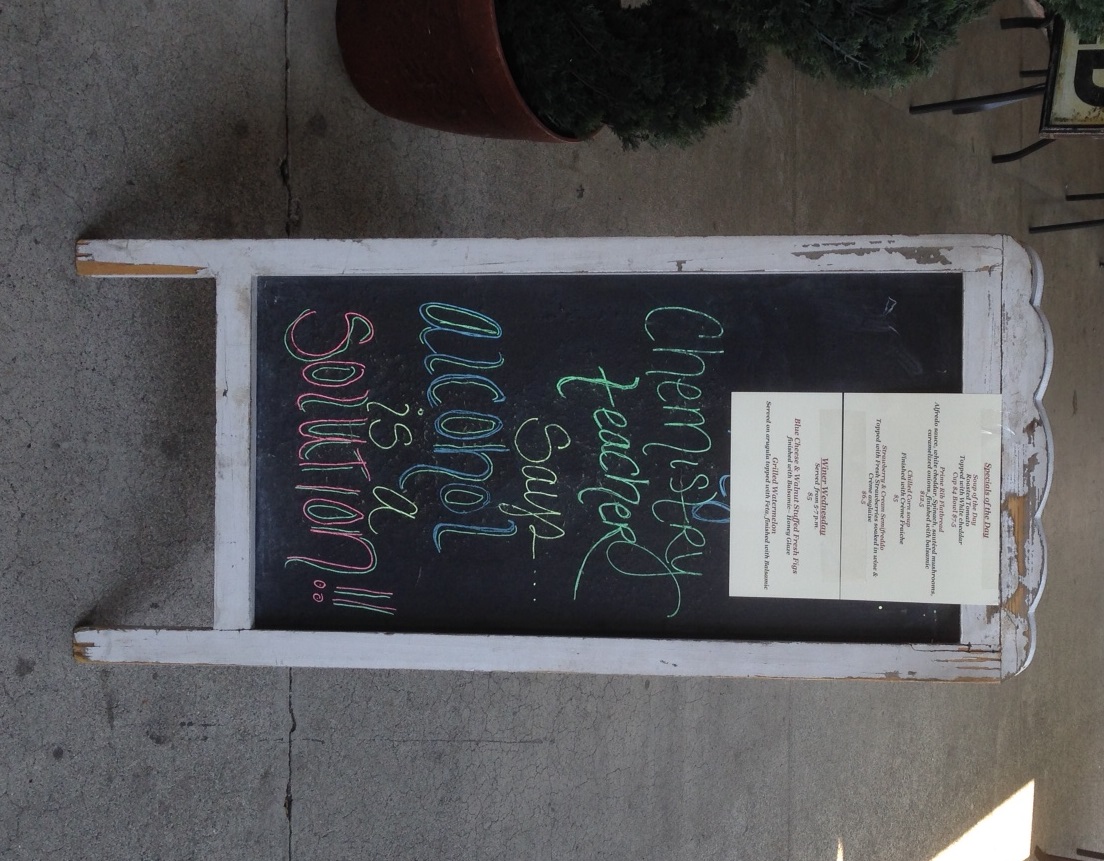 Specials of the Day
Soup of the Day
Roasted Tomato
Topped with White cheddar
Cup $4 Bowl $7.5
Prime Rib Flatbread
Alfredo sauce, white cheddar, Spinach, sautéed mushrooms,
caramelized onions, finished with balsamic
$12.5
Chilled Corn soup
Finished with Crème Fraiche
$5
Strawberry & Cream Semifreddo
Topped with Fresh Strawberries soaked in wine &
Creme Anglaise
$6.5
Winer Wednesday
Served from 5-7 p.m.
$5
Blue Cheese & Walnut Stuffed Fresh Figs
finished with Balsamic Honey Glaze
Grilled Watermelon
Served on arugula topped with Feta, finished with Balsamic
Chemistry
teacher
Say....
alcohol
is a
Solution!!!